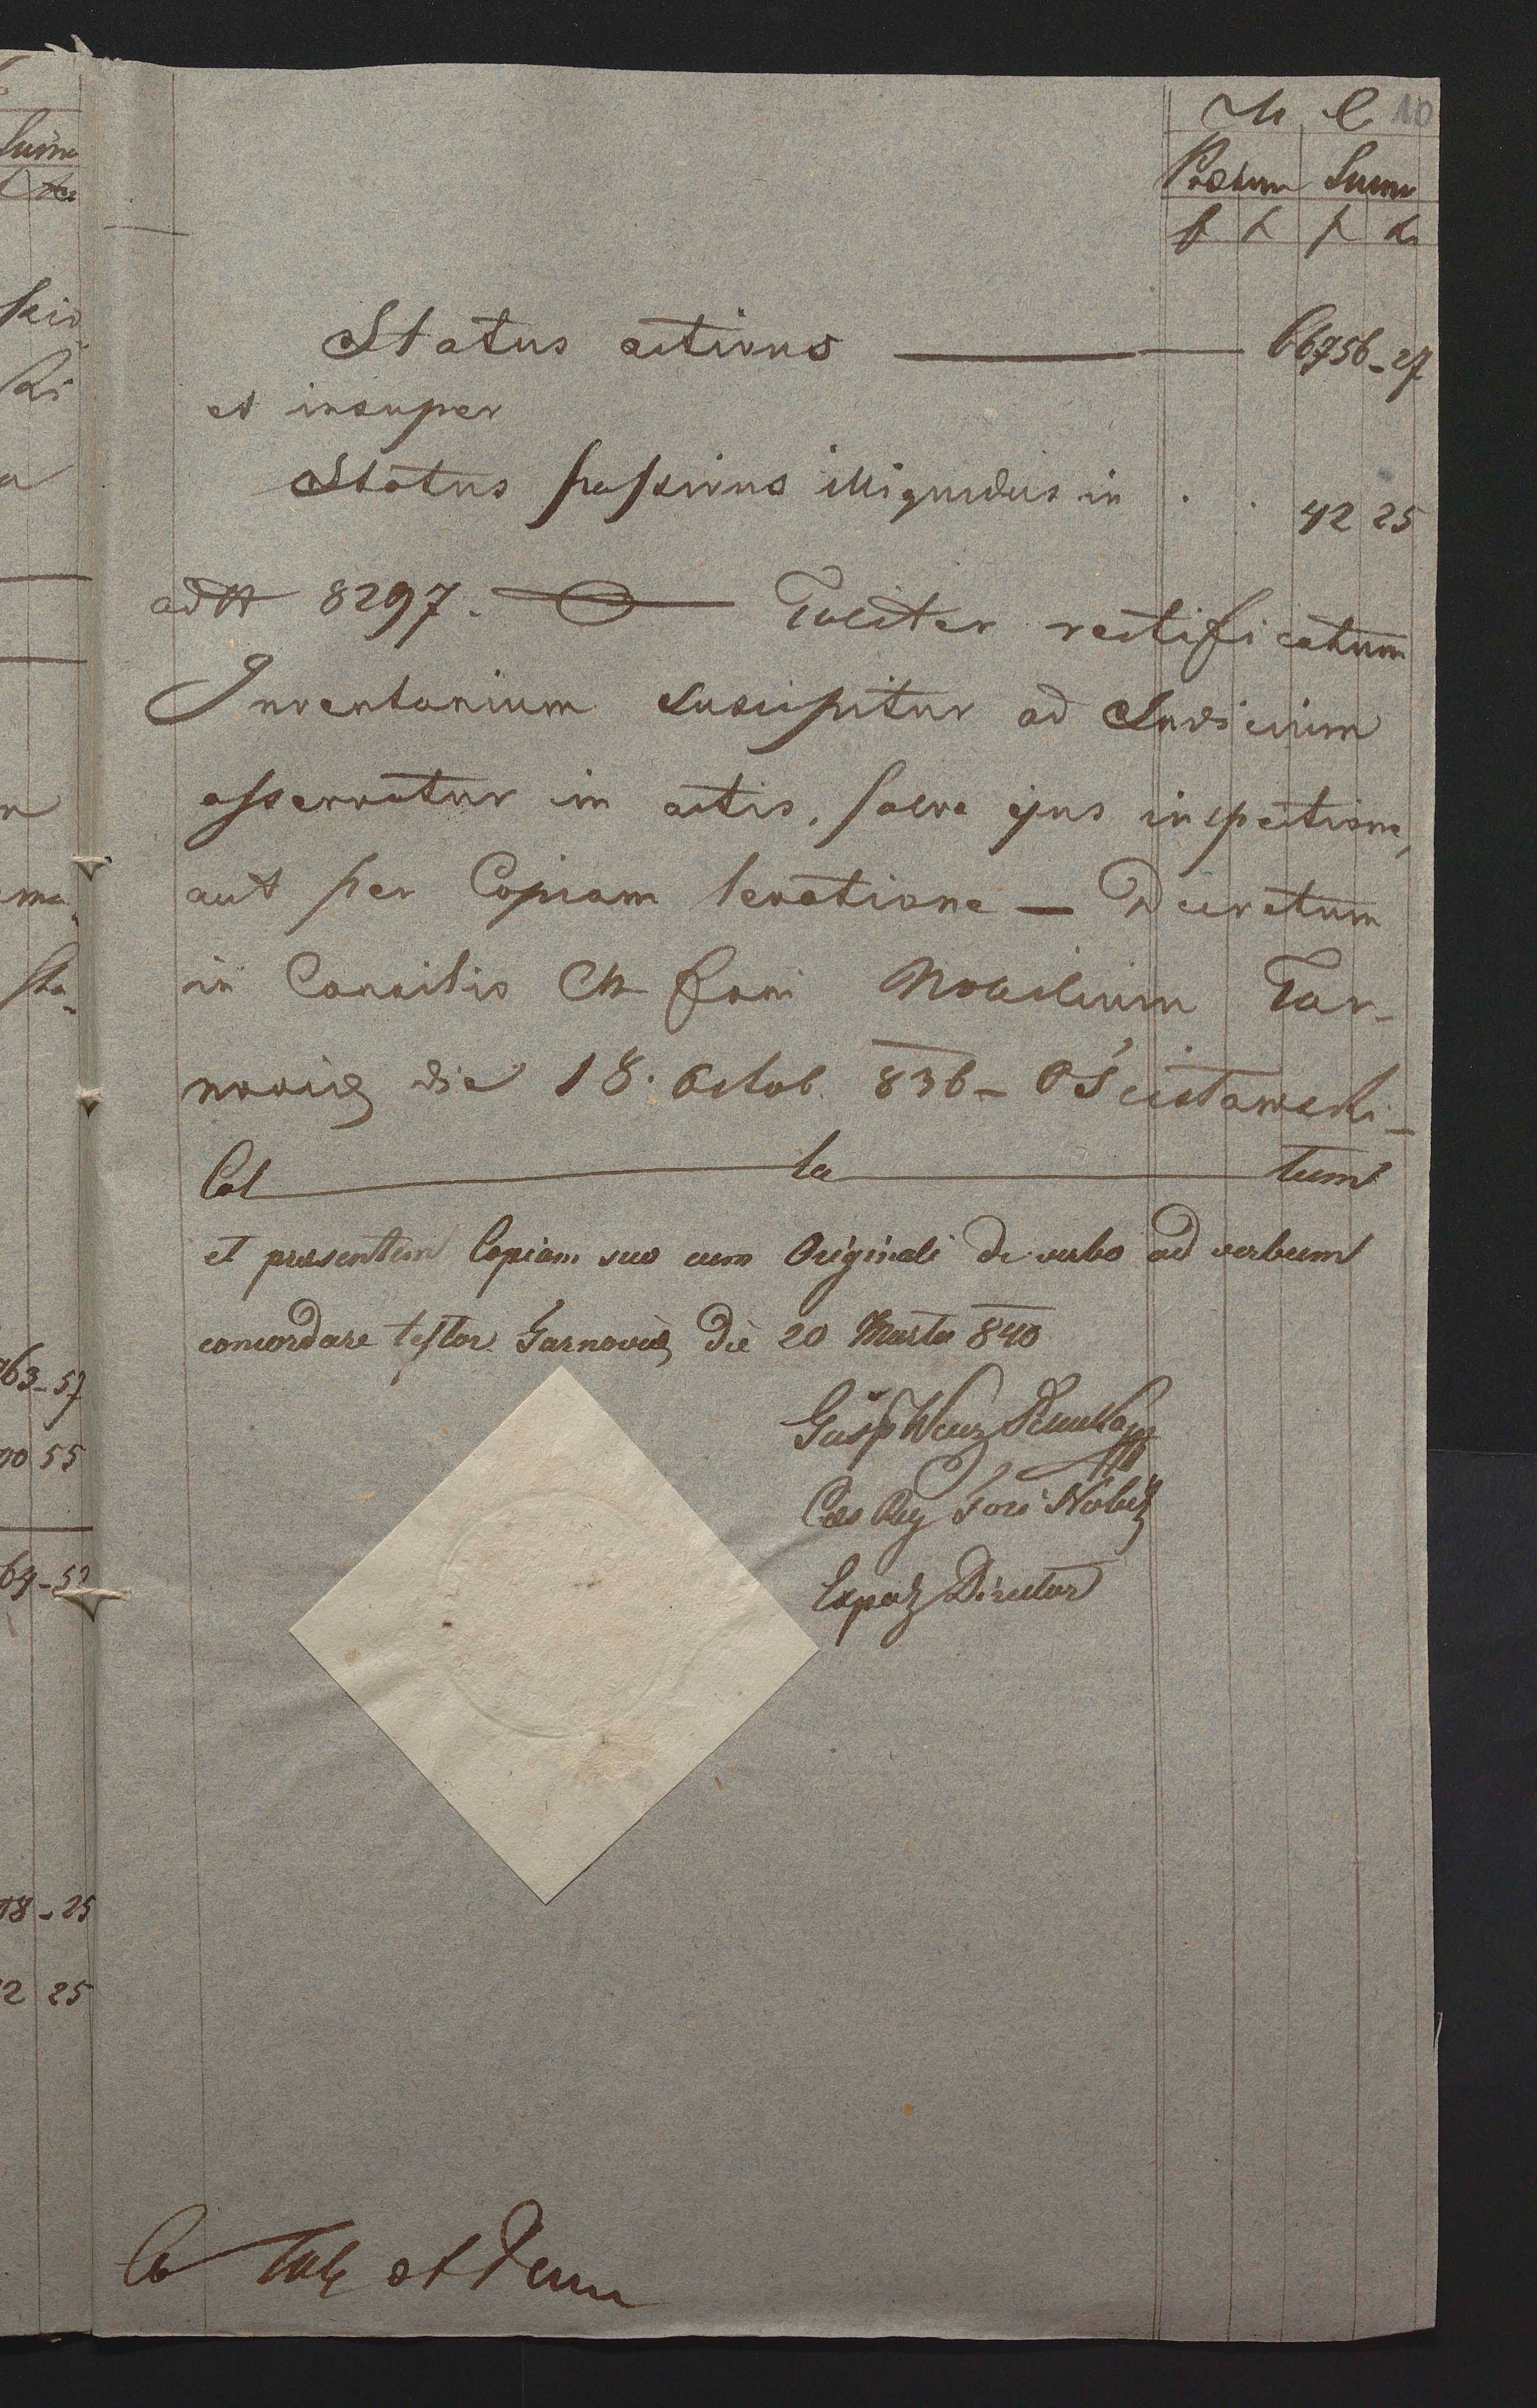 M. C. 10
Pretium Summa
f x f x
Status activus 66756 - 27
et insuper
Status passivus illiquidus in . . 42 25
ad N 8297. Taliter rectificatum
Inventarium suscipitur ad Judicium
asservatur in actis, salva ejus inspectione,
aut per Copiam levatione — Decretum
in Consilio CR fori Nobilium Tar-
noviæ die 18. Octob. 836 - Ościstawski -
Col la tum
et præsentem Copiam suo cum Originali de verbo ad verbum
concordare testor Tarnoviæ die 20 Martii 840
Cæs Reg Fori Nobil
Exped Director